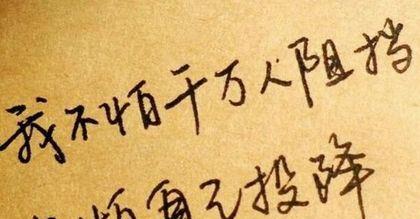 我不怕千万人阻挡
怕自己投降